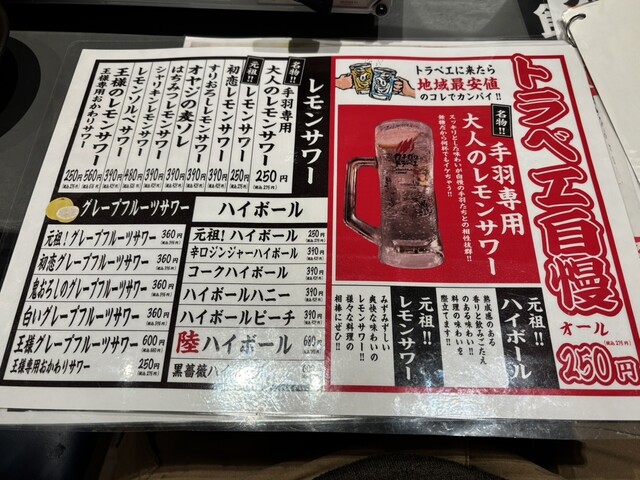 トラベエ自慢
オール
250円
(税込275円)
トラベエに来たら
地域最安値
のコレでカンパイ!!
名物!!
手羽専用
大人のレモンサワー
スッキリとした味わいが自慢の手羽たちとの相性抜群!!
無糖だから何杯でもイケちゃう!!
元祖!!
ハイボール
熟成感のある
香りと飲みごたえ
のある味わいを
料理の味わいを
際立てます!!
元祖!!
レモンサワー
みずみずしい
爽快な味わいの
レモンサワー!!
様々な料理の
相棒にぜひ!!
レモンサワー
名物!!
手羽専用
大人のレモンサワー 250円
元祖!!
レモンサワー 250円
初恋レモンサワー 390円
すりおろしレモンサワー 390円
オヤジの麦ソレ 390円
はちみつレモンサワー 390円
シャリキンレモンサワー 390円
レモンソルベサワー 480円
王様のレモンサワー 560円
王様専用おかわりサワー 250円
グレープフルーツサワー
元祖!グレープフルーツサワー 360円
初恋グレープフルーツサワー 360円
鬼おろしのグレープフルーツサワー 360円
白いグレープフルーツサワー 360円
王様グレープフルーツサワー 600円
王様専用おかわりサワー 250円
ハイボール
元祖!ハイボール 250円
辛口ジンジャーハイボール 390円
コークハイボール 390円
ハイボールハニー 390円
ハイボールピーチ 390円
陸ハイボール 680円
黒薔薇ハイ